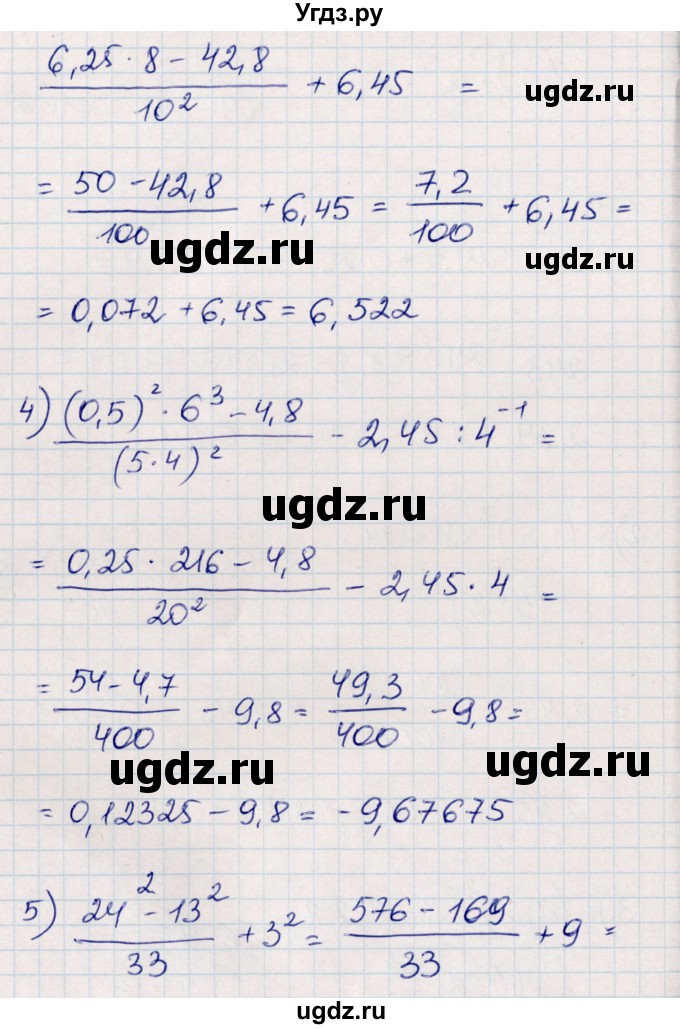 Угдз.ру
(6,25 · 8 − 42,8)/10² + 6,45 =
ugdz.ru
= (50 − 42,8)/100 + 6,45 = 7,2/100 + 6,45 =
ugdz.ru
ugdz.ru
= 0,072 + 6,45 = 6,522
4) ((0,5)² · 6³ − 4,8)/(5·4)² − 2,45 : 4⁻¹ =
ugdz.ru
= (0,25 · 216 − 4,8)/20² − 2,45 · 4 =
= (54 − 4,7)/400 − 9,8 = 49,3/400 − 9,8 =
ugdz.ru
ugdz.ru
= 0,12325 − 9,8 = −9,67675
5) (24² − 13²)/33 + 3² = (576 − 169)/33 + 9 =
ugdz.ru